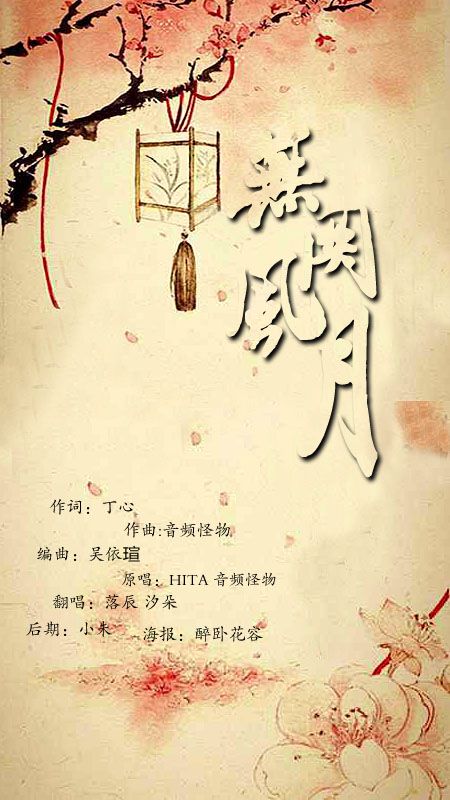 無関風月
作词：丁心
作曲:音频怪物
编曲：吴依瑄
原唱：HITA 音频怪物
翻唱：落辰 汐朵
后期：小朱
海报：醉卧花容